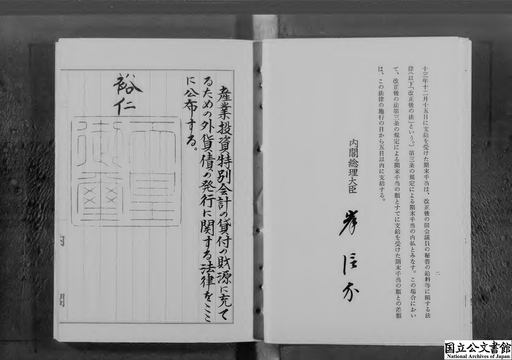 十三年十二月十五日に支給を受けた期末手当は、改正後の国会議員の秘書の給料等に関する法
律(以下「改正後の法」という。)第三条の規定による期末手当の内払とみなす。この場合におい
て、改正後の法第三条の規定による期末手当の額とすでに支給を受けた期末手当の額との差額
は、この法律の施行の日から五日以内に支給する。
内閣総理大臣
岸信介
二
産業投資特別会計の貸付の財源に充て
るための外貨債の発行に関する法律をここ
に公布する。
裕仁
天皇
御璽
内閣
国立公文書館
National Archives of Japan